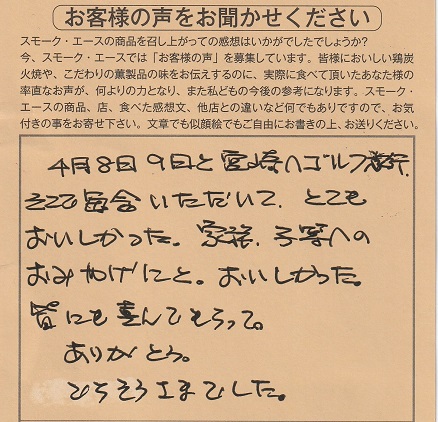 お客様の声をお聞かせください
スモーク・エースの商品を召し上がっての感想はいかがでしたでしょうか?
今、スモーク・エースでは「お客様の声」を募集しています。皆様においしい鶏炭
火焼や、こだわりの薫製品の味をお伝えするのに、実際に食べて頂いたあなた様の
率直なお声が、何よりの力となり、また私どもの今後の参考になります。スモーク・
エースの商品、店、食べた感想文、他店との違いなど何でもありですので、お気
付きの事をお寄せ下さい。文章でも似顔絵でもご自由にお書きの上、お送りください。
4月8日9日と宮崎へゴルフ旅行、
そこで
いただいて、とても
おいしかった。家族、子等への
おみやげにと。おいしかった。
皆にも喜んでもらって。
ありがとう。
ごちそうさまでした。